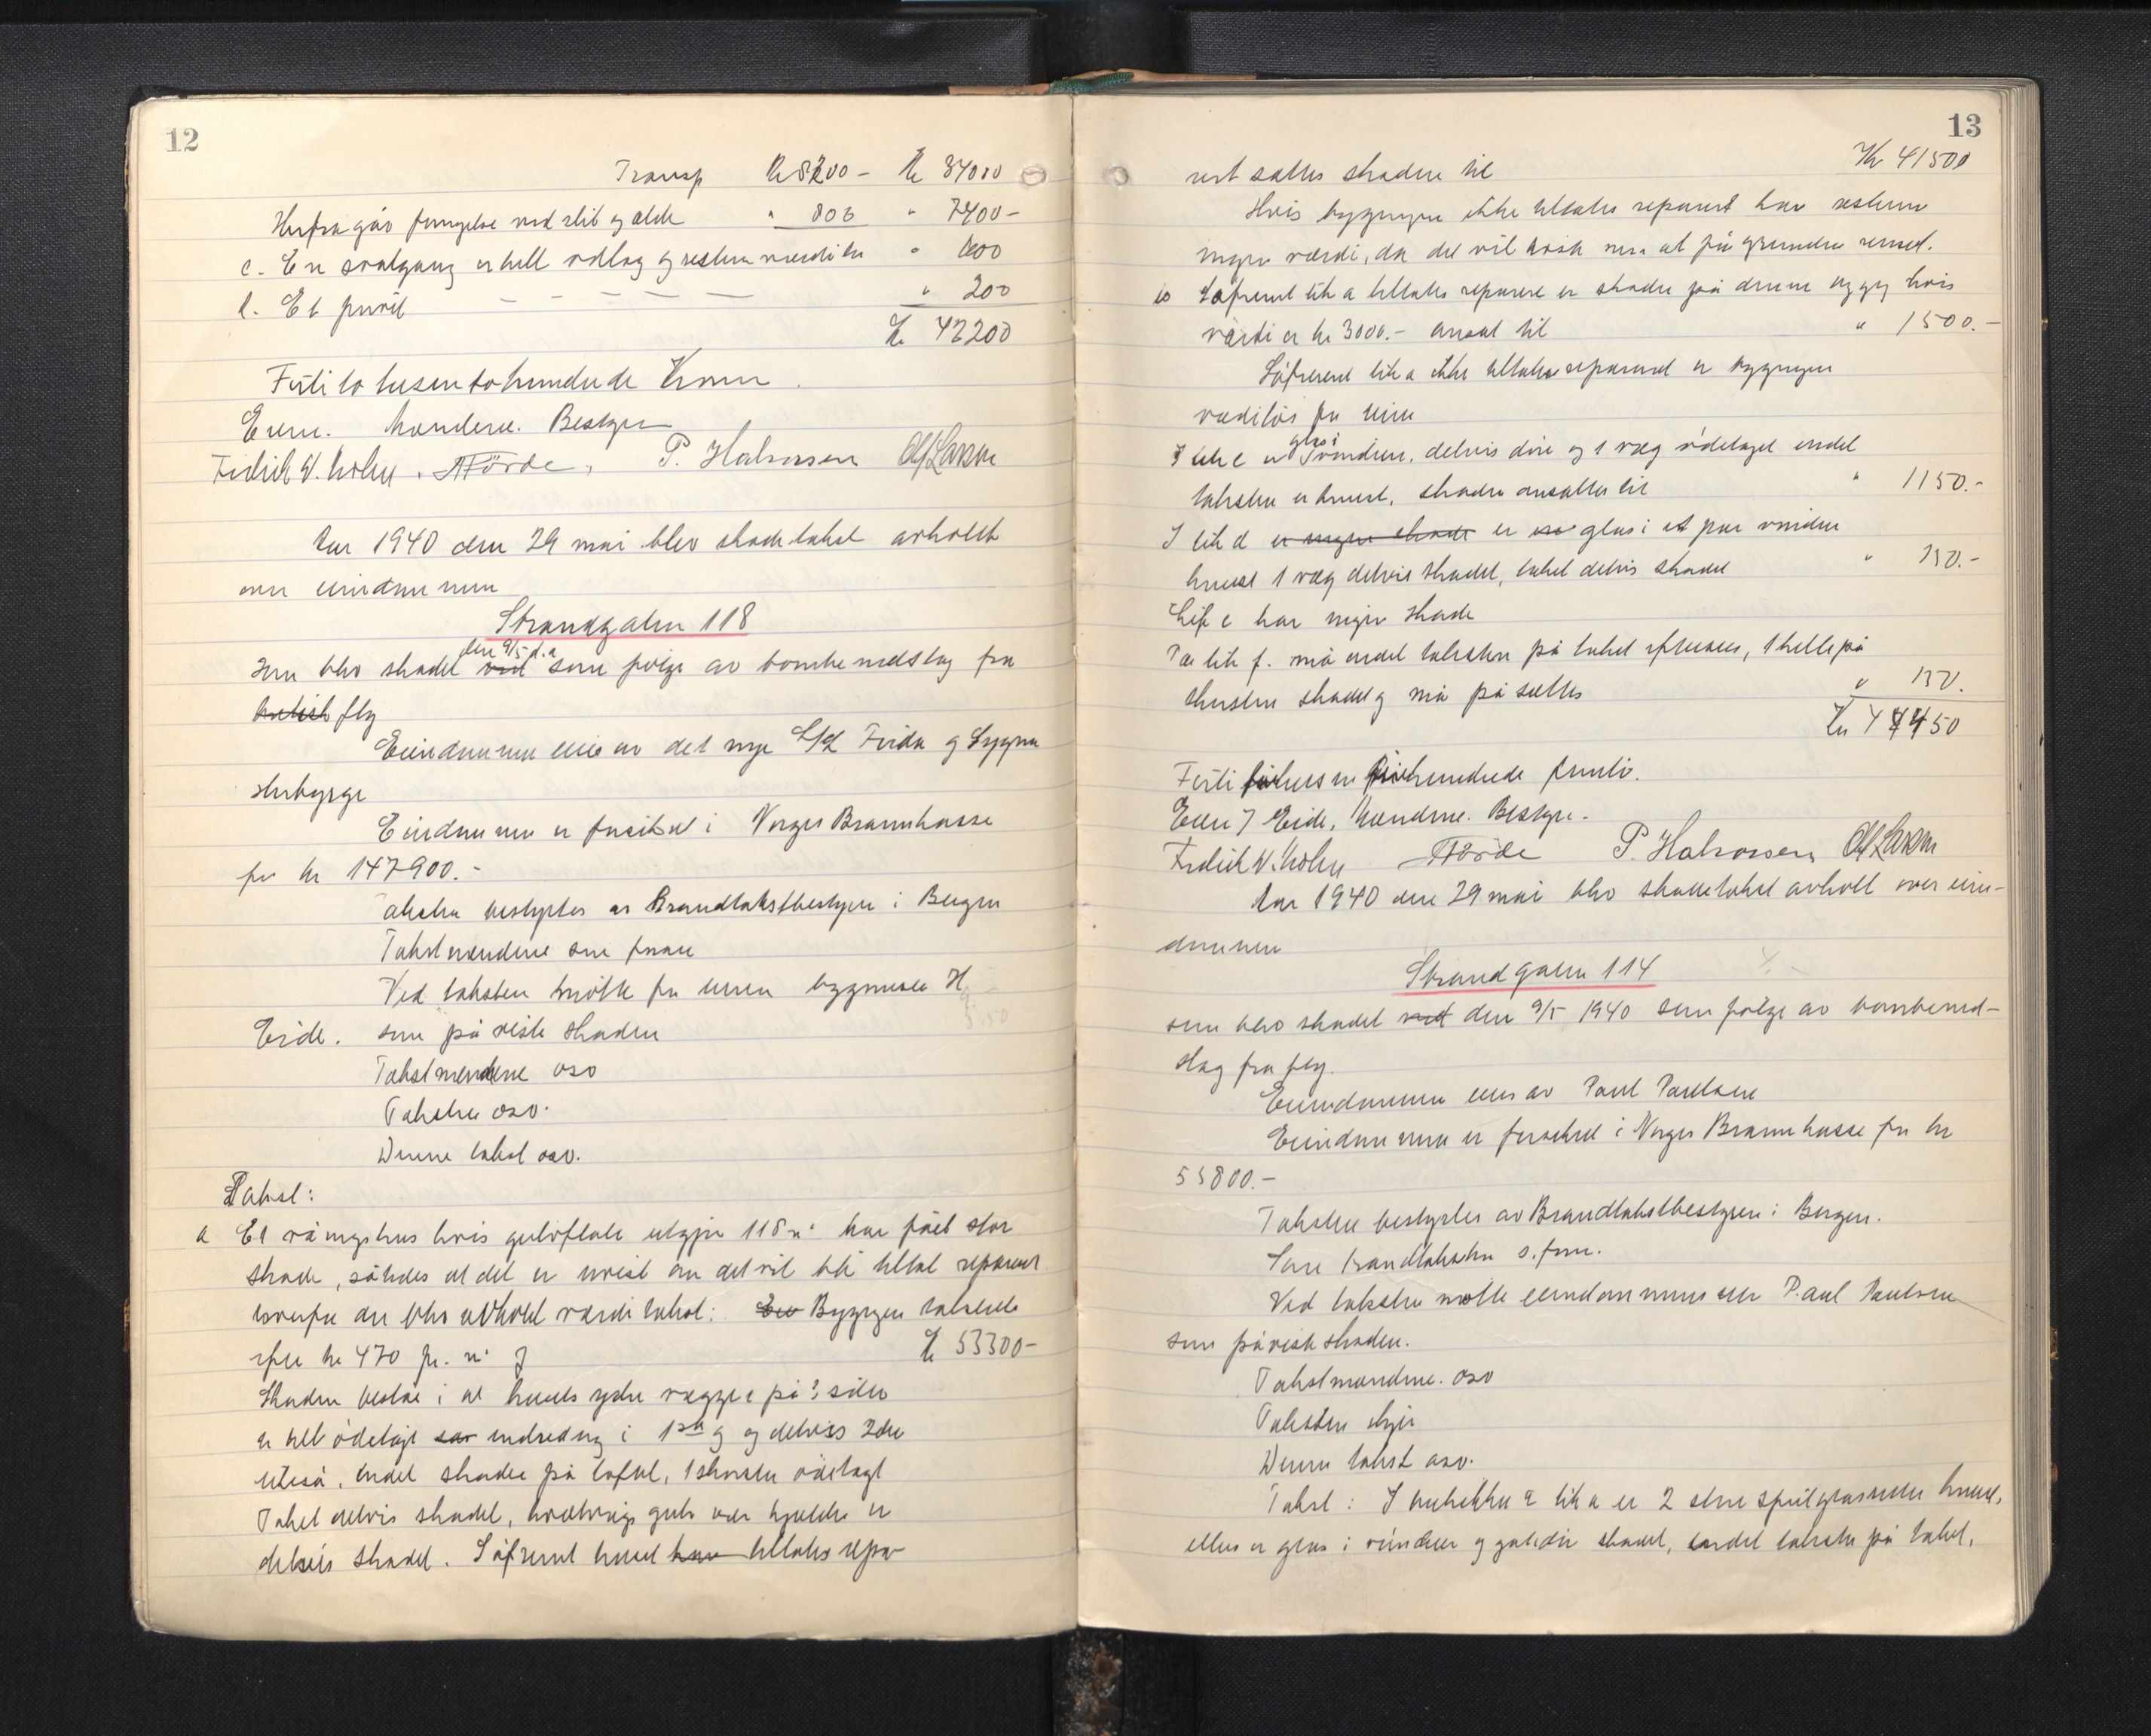 12
Transp Kr 8200 – Kr 34000
Herfra går forringelse ved slit og ælde " 800 " 7400 –
c. En svalgang er helt ødlag og resten værdiløs " 600
d. Et privet – – – – – " 200
Kr 42200
Førtito tusentohundrede Kroner.
Eieren. Mændene. Bestyrer
Fridrich W. . Førde. P. Halvorsen Olf Larsen
Aar 1940 den 29 mai blev skadetakst avholdt
over eiendommen
Strandgaten 118
den 9/5 d.a
som blev skadet ved som følge av bombenedslag fra
britisk fly
Eiendommen eies av det nye S/L Firda og Sygna
Eiendommen er forsikret i Norges Brannkasse
for kr 147900.-
Taksten bestyrtes av Brandtakstbestyren i Bergen
Takstmændene som foran
Ved taksten møtte for eieren byggmester H
Eide. som påviste skaden
Takstmændene osv
Taksten osv.
Denne takst osv.
Takst:
a Et våningshus hvis gulvflate utgjør 118 m² har fået stor
skade, således at det er uvist om det vil bli tillat reparert
hvorfor der blev avholdt værdi takst: En Bygningen takseres
efter kr 470 pr. m² Kr 53300 –
Skaden består i at husets ydre vægger på 3 sider
er helt ødelagt samt indredning i 1ste og delvis 2den
etasje, endel skader på loftet, 1 skorsten ødelagt
Taket delvis skadet, gulv over kjelder er
delvis skadet. Såfremt huset kan tillates repa-
13
rert sættes skaden til Kr 41500
Hvis bygningen ikke tillates reparert har resten
ingen værdi, da det vil koste mer at få grunden renset.
b Såfremt litr a tillates reparere er skaden på denne bygg hvis
værdi er kr 3000.- ansat til " 1500.-
Såfremt litr a ikke tillates reparered er bygningen
værdiløs for eieren
I litr c er glas i vinduer, delvis døre og 1 væg ødelagt endel
taksten er knust, skaden ansættes til " 1150.-
I litr d er ingen skade er glas i et par vinduer
knust 1 væg delvis skadet, taket delvis skadet " 150.-
Litr e har ingen skade
På litr f. må endel taksten på taket efterses, 1 helle på
skorsten skadet og må påsettes " 150.
Kr 44450
Førti firetusen firehundrede femti.
Eier J Eide, Mændene. Bestyrer.
Fridrich W. Førde P. Halvorsen Olf Larsen
Aar 1940 den 29 mai blev skadetakst avholt over eien-
dommen
Strandgaten 114
som blev skadet ved den 9/5 1940 som følge av bombened-
slag fra fly.
Eiendommen eies av Paul Paulsen
Eiendommen er forsikret i Norges Brannkasse for kr
55800.-
Taksten bestyrtes av Brandtakstbestyren i Bergen.
Ved taksten møtte eiendommens eier Paul Paulsen
som påviste skaden.
Takstmændene. osv
Taksten utgjør
Denne takst osv.
Takst: I butikken i litr a er 2 store speilglassruter knust,
ellers er glas i vinduer og gatedør skadet, endel taksten på taket,